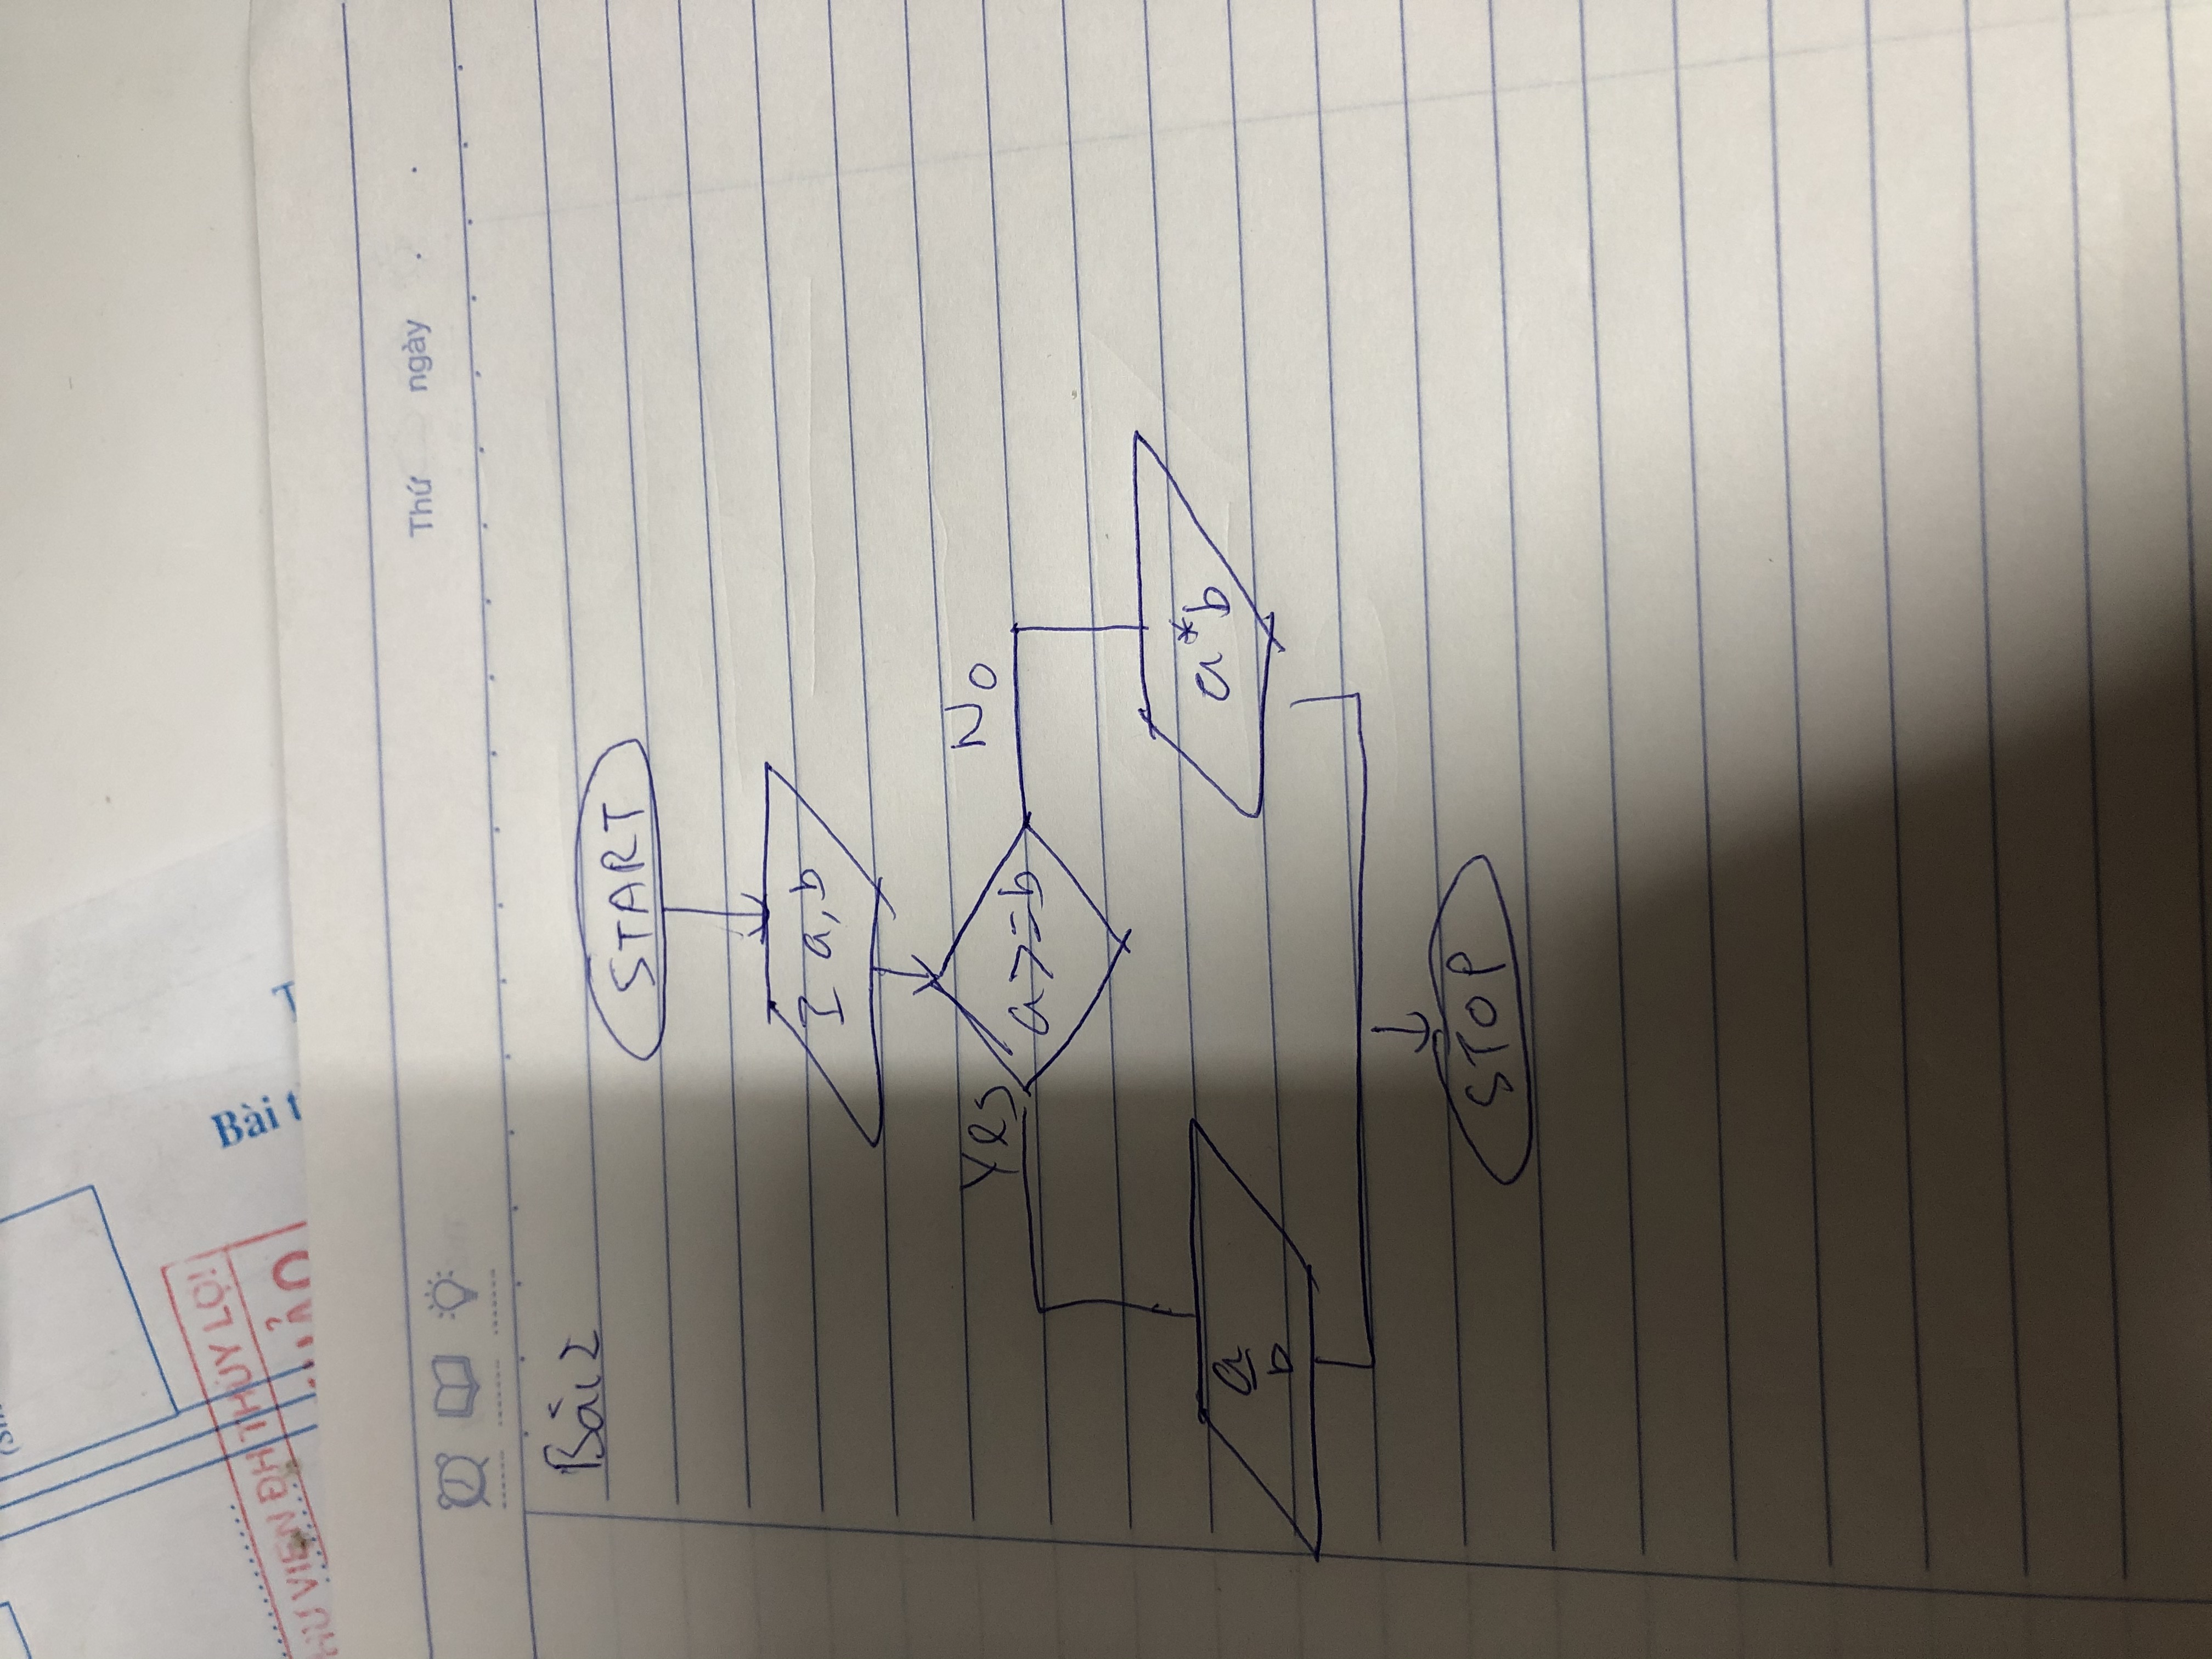 THƯ VIỆN ĐH THỦY LỢI
Bài t
T
Thứ ngày . .
Bài 2
START
I a, b
Yes
a>=b
No
a
b
a*b
STOP